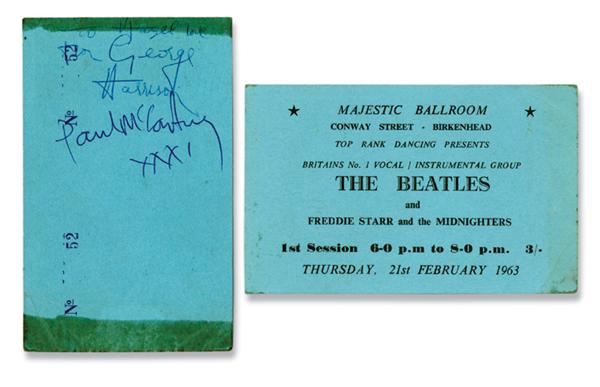 to Hazel love
from George
Harrison
Paul McCartney
XXX
No ... 52
No ... 52
★ MAJESTIC BALLROOM ★
CONWAY STREET - BIRKENHEAD
TOP RANK DANCING PRESENTS
BRITAINS No. 1 VOCAL / INSTRUMENTAL GROUP
THE BEATLES
and
FREDDIE STARR and the MIDNIGHTERS
1st Session 6-0 p.m to 8-0 p.m. 3/-
THURSDAY, 21st FEBRUARY 1963